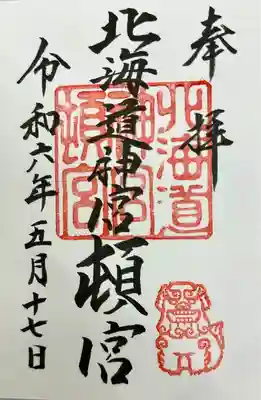 奉拝
北海道神宮頓宮
令和六年五月十七日
北海道
神宮
頓宮